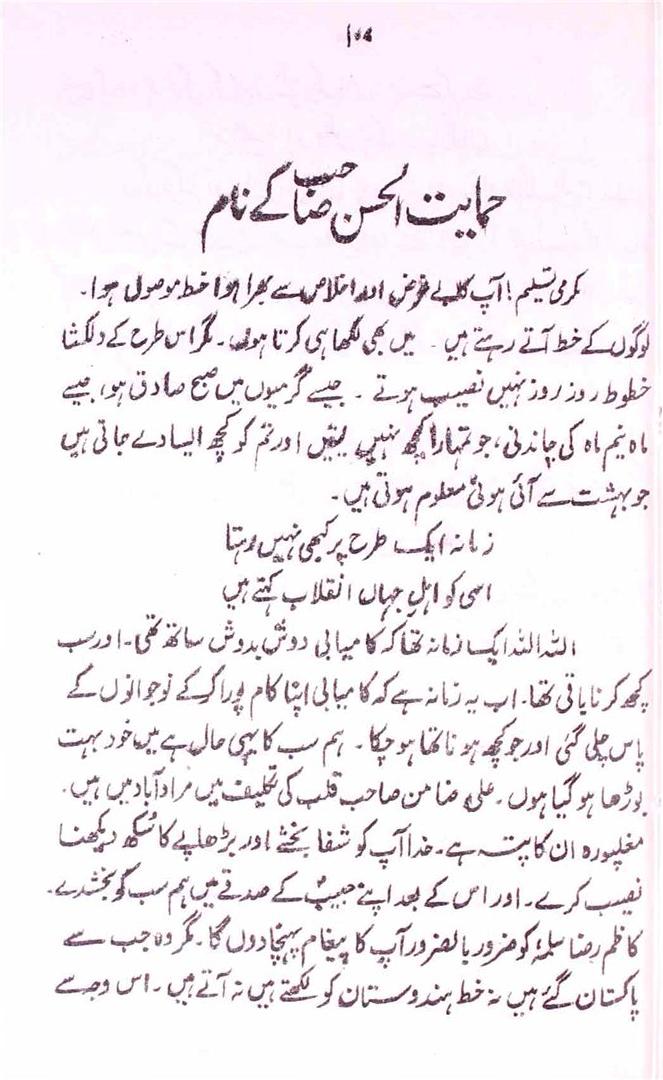 ۱۰۸
حمایت الحسن صاحب کے نام
کرمی تسلیم! آپ کا بے غرض اور اخلاص سے بھرا ہوا خط موصول ہوا۔
لوگوں کے خط آتے رہتے ہیں۔ میں بھی لکھا ہی کرتا ہوں۔ مگر اس طرح کے دلکشا
خطوط روز روز نہیں نصیب ہوتے۔ جیسے گرمیوں میں صبح صادق ہو، جیسے
ماہ نیم ماہ کی چاندنی، جو تمہارا کچھ نہیں لیتیں اور تم کو کچھ ایسا دے جاتی ہیں
جو بہشت سے آئی ہوئی معلوم ہوتی ہیں۔
زمانہ ایک طرح پر کبھی نہیں رہتا
اسی کو اہلِ جہاں انقلاب کہتے ہیں
اللہ اللہ ایک زمانہ تھا کہ کامیابی دوش بدوش ساتھ تھی۔ اور سب
کچھ کرنا باقی تھا۔ اب یہ زمانہ ہے کہ کامیابی اپنا کام پورا کر کے نوجوانوں کے
پاس چلی گئی اور جو کچھ ہونا تھا ہو چکا۔ ہم سب کا یہی حال ہے میں خود بہت
بوڑھا ہو گیا ہوں۔ علی ضامن صاحب قلب کی تکلیف میں مرادآباد میں ہیں۔
مغلپورہ ان کا پتہ ہے۔ خدا آپ کو شفا بخشے اور بڑھاپے کا سُکھ دیکھنا
نصیب کرے۔ اور اس کے بعد اپنے حبیبؐ کے صدقے میں ہم سب کو بخشدے۔
کاظم رضا سلمہٗ کو ضرور بالضرور آپ کا پیغام پہنچا دوں گا۔ مگر وہ جب سے
پاکستان گئے ہیں نہ خط ہندوستان کو لکھتے ہیں نہ آتے ہیں۔ اس وجہ سے